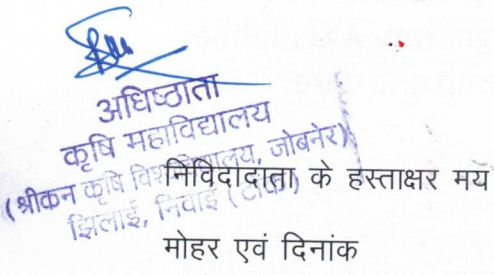 अधिष्ठाता
कृषि महाविद्यालय
(श्रीकन कृषि विश्वविद्यालय, जोबनेर)
झिलाई, निवाई (टोंक)
निविदादाता के हस्ताक्षर मय
मोहर एवं दिनांक